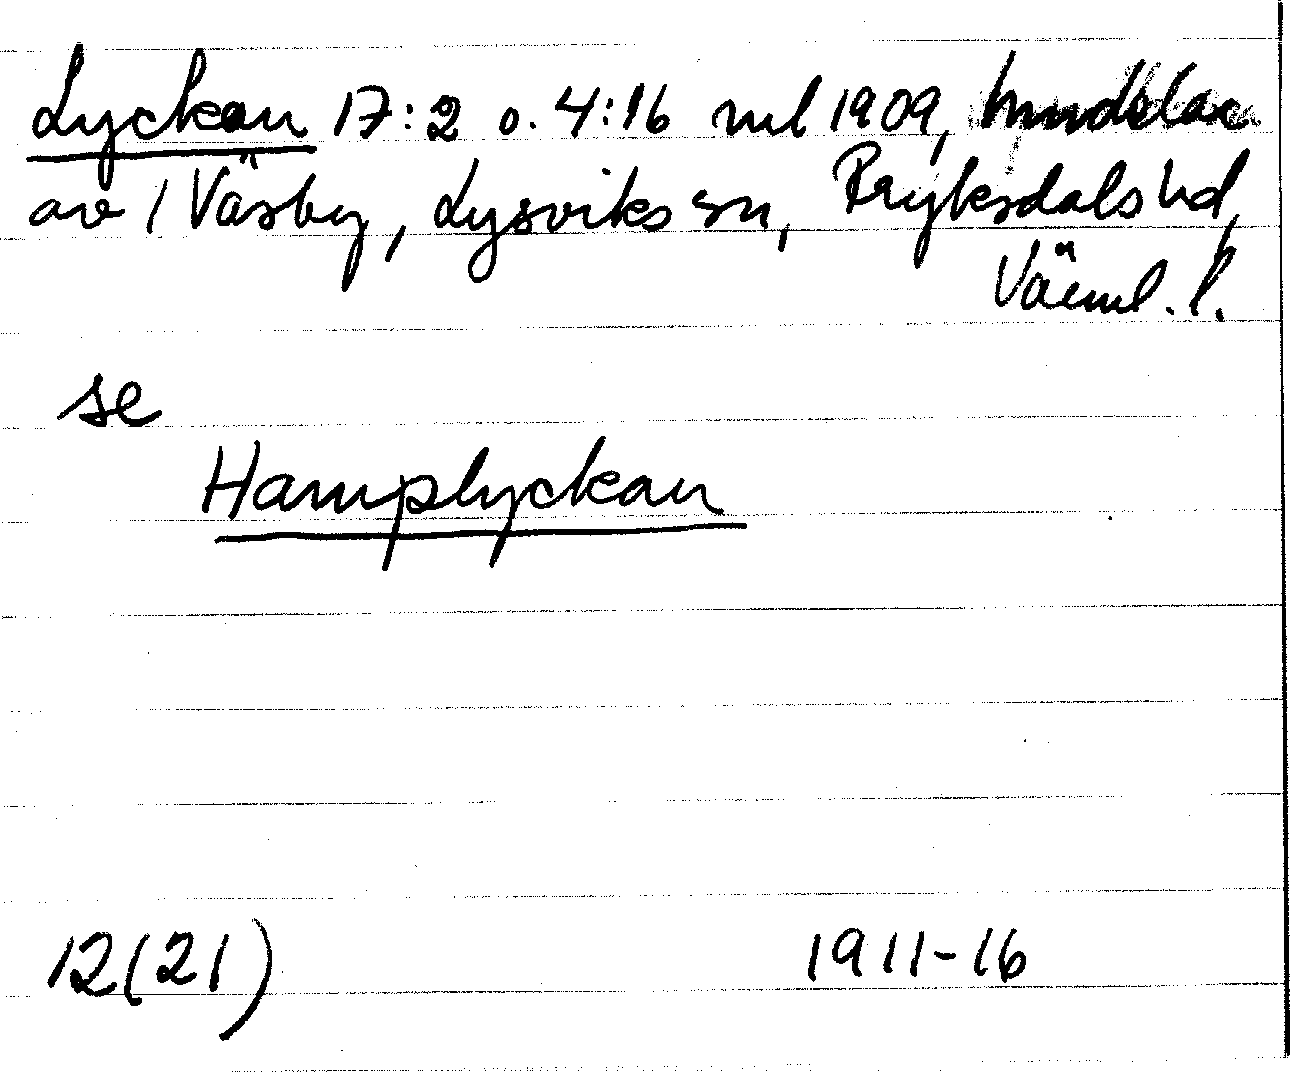 Lyckan 17:2 o. 4:16 ml 1909, hmdelar
av 1 Väsby, Lysviks sn, Fryksdals hd,
Värml. l.
se
Hamplyckan
12(21) 1911-16